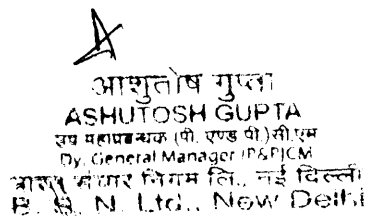 आशुतोष गुप्ता
ASHUTOSH GUPTA
उप महाप्रबन्धक (पी. एण्ड पी.)सी.एम
Dy. General Manager (P&P)CM
भारत संचार निगम लि., नई दिल्ली
B. S. N. Ltd., New Delhi